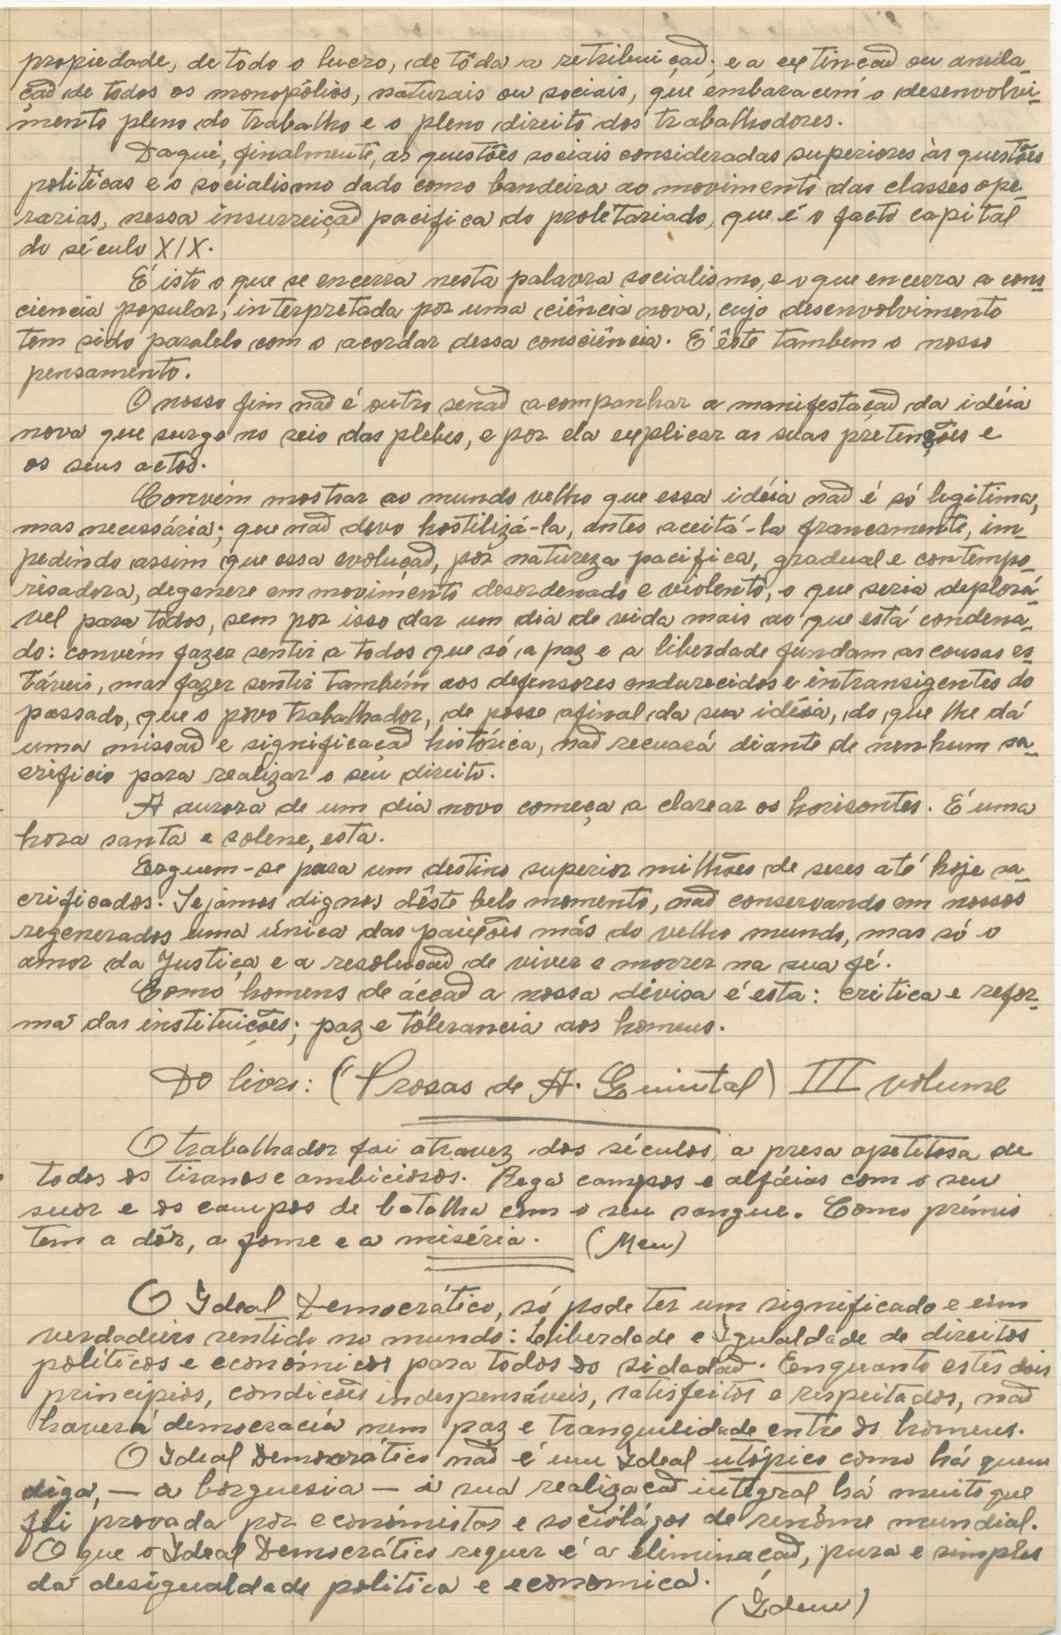 propiedade, de tôdo o lucro, de tôda a retribuiçad; e a extincad ou anula-
çad de todos os monopólios, naturais ou sociais, que embaracem o desenvolvi-
mento pleno do trabalho e o pleno direito dos trabalhodores.
Daqui, finalmente, as questões sociais consideradas superiores às questões
politicas e o socialismo dado como bandeira ao movimento das classes ope
rarias, nessa insurreiçad pacifica do proletariado, que é o facto capital
do século XIX.
É isto o que se encerra nesta palavra socialismo, e o que encerra a cons-
ciencia popular, interpretada por uma ciência nova, cujo desenvolvimento
tem sido paralelo com o acordar dessa consciência. É êste tambem o nosso
pensamento.
O nosso fim nad é outro senad acompanhar a manifestacad da idéia
nova que surge no seio das plebes, e por ela explicar as suas pretenções e
os seus actos.
Convém mostrar ao mundo velho que essa idéia nad é só legitima,
mas necessária; que nad deve hostilizá-la, antes aceitá-la francamente, im-
pedindo assim que essa evoluçad, por natureza pacifica, gradual e contempo-
risadora, degenere em movimento desordenado e violento, o que seria deplorá-
vel para todos, sem por isso dar um dia de vida mais ao que está condena-
do: convém fazer sentir a todos que só a paz e a liberdade fundam as cousas es-
táveis, mas fazer sentir também aos defensores endurecidos e intransigentes do
passado, que o povo trabalhador, de posse afinal da sua idéia, do que lhe dá
uma missad e significacad histórica, nad recuará diante de nenhum sa-
crificio para realizar o seu direito.
A aurora de um dia novo começa a clarear os horisontes. É uma
hora santa e solene, esta.
Erguem-se para um destino superior milhões de seres até hoje sa-
crificados. Sejamos dignos dêste belo momento, nad conservando em nossos
regenerados uma única das paixões más do velho mundo, mas só o
amor da Justiça e a resolucad de viver e morrer na sua fé.
Como homens de acçad a nossa divisa é esta: critica e refor-
ma das instituições; paz e tolerancia aos homens.
Do livro: (Prosas de A. Quintal) III volume
O trabalhador foi atravez dos séculos, a presa apetitosa de
todos os tiranos e ambiciosos. Rega campos e alfáias com o seu
suor e os campos de batalha com o seu sangue. Como prémio
tem a dôr, a fome e a miséria. (Meu)
O Ideal Democrático, só pode ter um significado e um
verdadeiro sentido no mundo: Liberdade e Igualdade de direitos
políticos e económicos para todos os sidadad. Enquanto estes dois
principios, condicões indespensáveis, satisfeitos e respeitados, nad
haverá democracia nem paz e tranquelidade entre os homens.
O Ideal Democrático nad é um Ideal utópico como há quem
diga, — a borguesia — a sua realizacad integral há muito que
foi provada por económistas e sociólogos de renôme mundial.
O que o Ideal Democrático requer é a eliminacad, pura e simples
da desigualdade politica e economica.
(Idem)